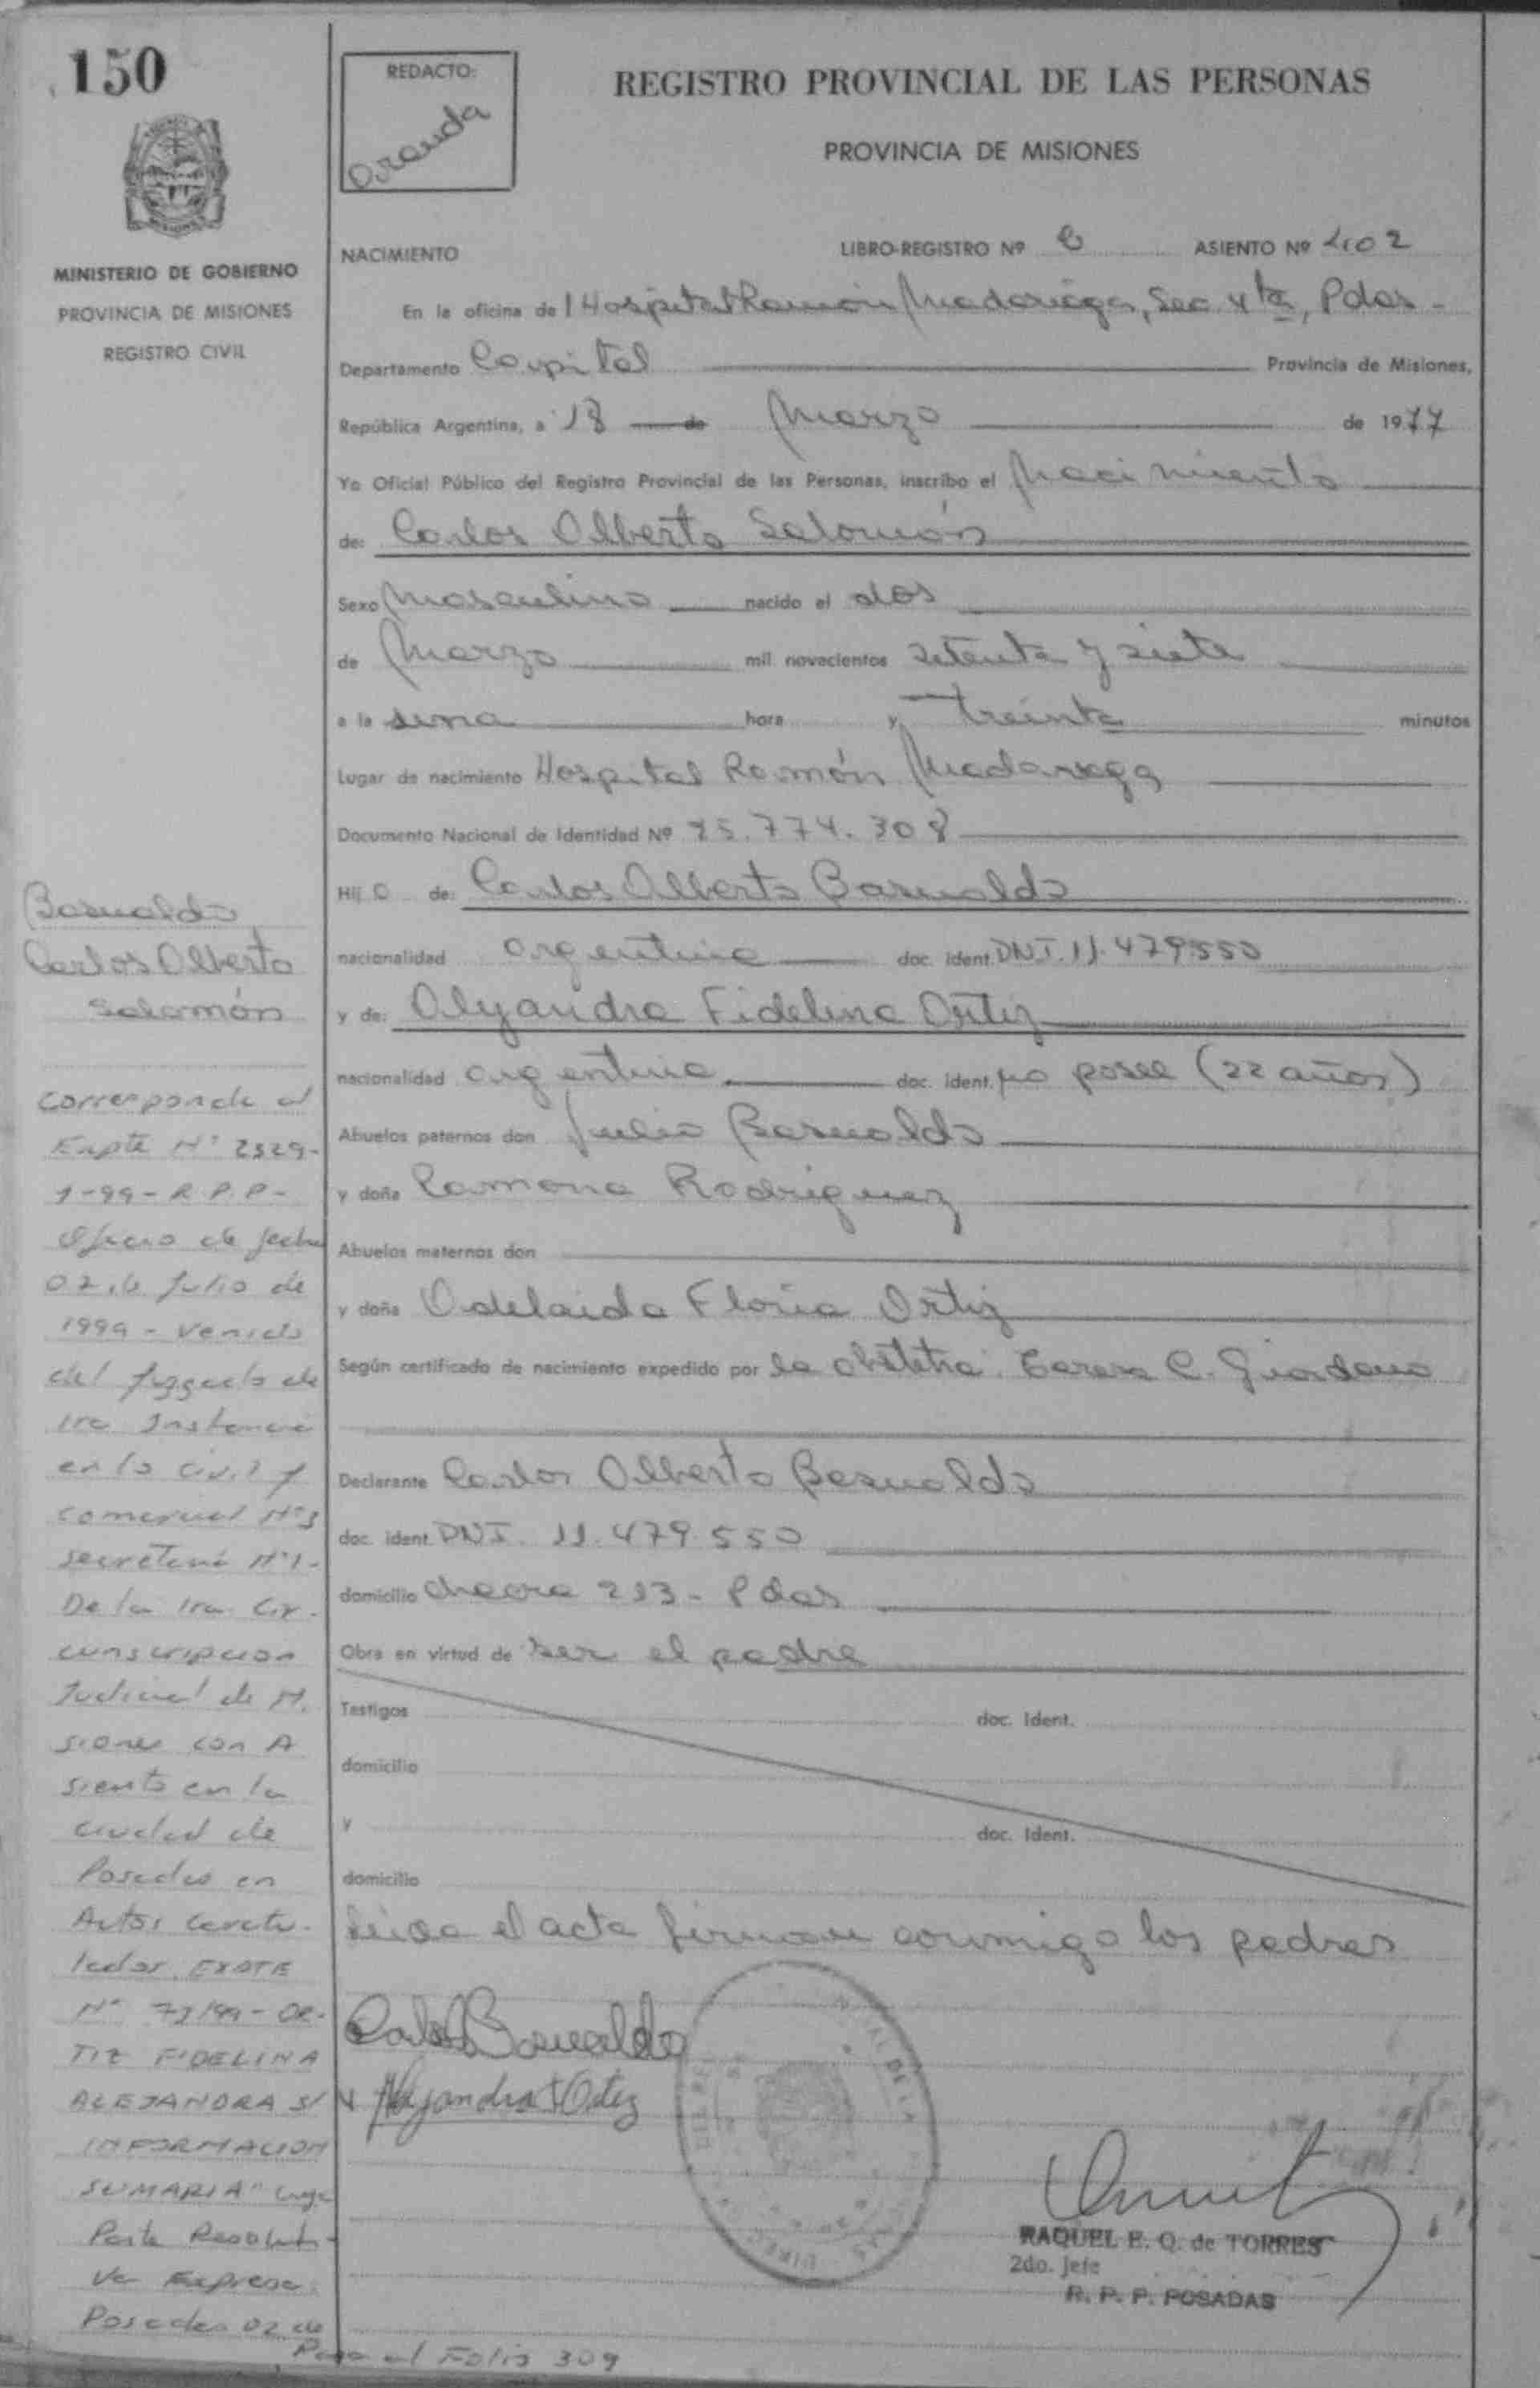 150
REDACTO:
Aranda
REGISTRO PROVINCIAL DE LAS PERSONAS
PROVINCIA DE MISIONES
MINISTERIO DE GOBIERNO
PROVINCIA DE MISIONES
REGISTRO CIVIL
NACIMIENTO LIBRO-REGISTRO Nº ASIENTO Nº 402
En la oficina del Hospital Ramón Madariaga, Sec. 4ta, Pdas -
Departamento Capital Provincia de Misiones,
República Argentina, a 18 de Marzo de 1977
Yo Oficial Público del Registro Provincial de las Personas, inscribo el Nacimiento
de: Carlos Alberto Salomón
Sexo Masculino nacido el dos
de Marzo mil novecientos setenta y siete
a la una hora y treinta minutos
Lugar de nacimiento Hospital Ramón Madariaga
Documento Nacional de Identidad Nº 25.774.308
Hijo de: Carlos Alberto Basualdo
nacionalidad argentina doc. ident. DNI. 11.479.550
y de: Alejandra Fidelina Ortiz
nacionalidad argentina doc. ident. no posee (22 años)
Abuelos paternos don Julio Basualdo
y doña Ramona Rodriguez
Abuelos maternos don
y doña Adelaida Floria Ortiz
Según certificado de nacimiento expedido por la obstetra: Teresa C. Giordano
Declarante Carlos Alberto Basualdo
doc. ident. DNI. 11.479.550
domicilio chacra 213 - Pdas
Obra en virtud de ser el padre
Testigos doc. Ident.
domicilio
y doc. Ident.
domicilio
Leida el acta firman conmigo los padres
Carlos Basualdo
Alejandra F Ortiz
RAQUEL E. Q. de TORRES
2do. Jefe
R. P. P. POSADAS
Basualdo
Carlos Alberto
Salomón
Corresponde al
Expte Nº 2529-
1-99- R.P.P-
Oficio de fecha
02 de Julio de
1999 - Venido
del Juzgado de
1ra Instancia
en lo Civil y
Comercial Nº3
secretaria Nº1-
De la 1ra Cir-
cunscripcion
Judicial de Mi
siones con A
siento en la
ciudad de
Posadas en
Autos caratu-
lados EXPTE
Nº 73/99 - OR-
TIZ FIDELINA
ALEJANDRA S/
INFORMACION
SUMARIA" cuya
Parte Resoluti-
va Expresa:
Posadas 02 de
Pasa al Folio 309